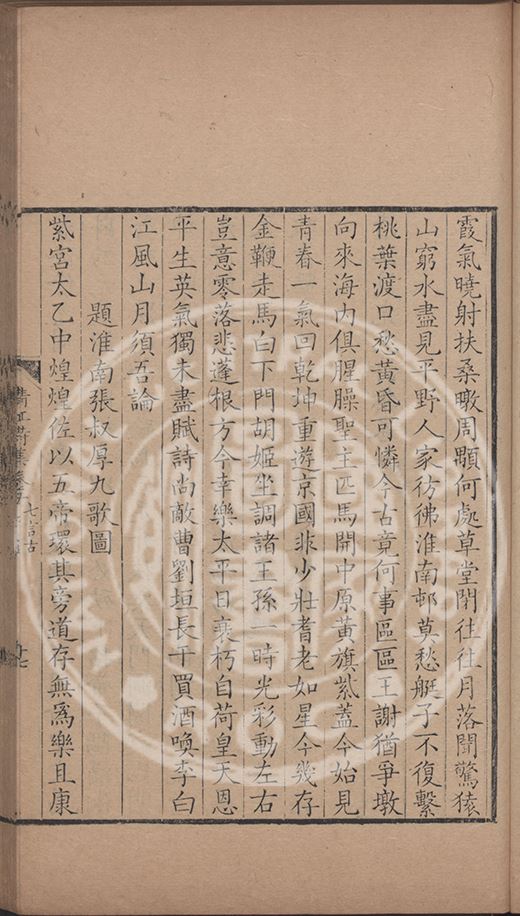 霞氣曉射扶桑暾周顒何處草堂閉往往月落聞驚猿
山窮水盡見平野人家彷彿淮南邨莫愁艇子不復繫
桃葉渡口愁黃昏可憐今古竟何事區區王謝猶爭墩
向來海內俱腥臊聖主匹馬開中原黃旗紫蓋今始見
青春一氣回乾坤重遊京國非少壯耆老如星今幾存
金鞭走馬白下門胡姬坐調諸王孫一時光彩動左右
豈意零落悲蓬根方今幸樂太平日衰朽自荷皇天恩
平生英氣獨未盡賦詩尚敵曹劉垣長干買酒喚李白
江風山月須吾論
題淮南張叔厚九歌圖
紫宮太乙中煌煌佐以五帝環其旁道存無為樂且康
清江詩集卷
七言古